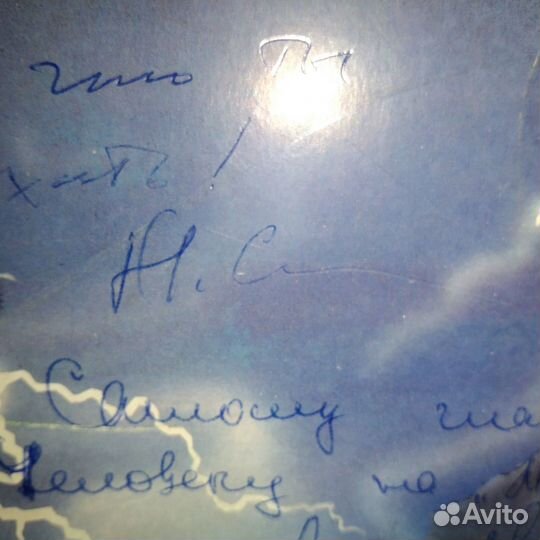 что Ты
хать!
Ю. С
Самому гла
Человеку на
Avito